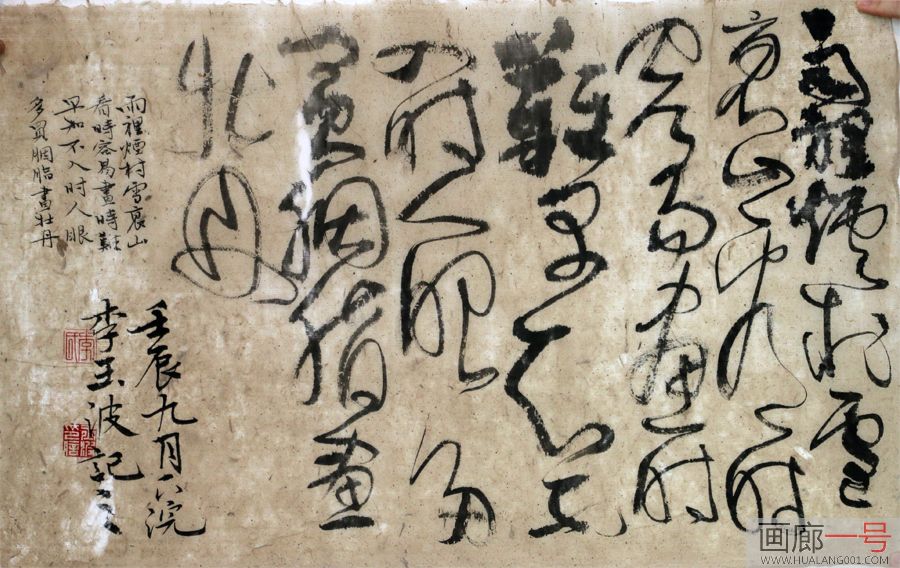 雨裡煙村雪
裏山看时
容易畫时
難早知不入
时人眼多
買胭脂畫
牡丹
雨裡煙村雪裏山
看時容易畫時難
早知不入时人眼
多買胭脂畫牡丹
壬辰九月下浣
李玉波記之
画廊一号
WWW.HUALANG001.COM